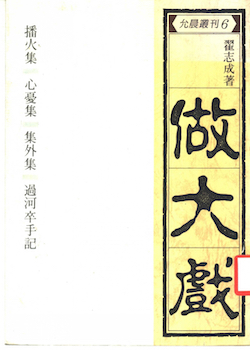 允晨叢刊6
翟志成著
做大戲
播火集
心憂集
集外集
過河卒手記